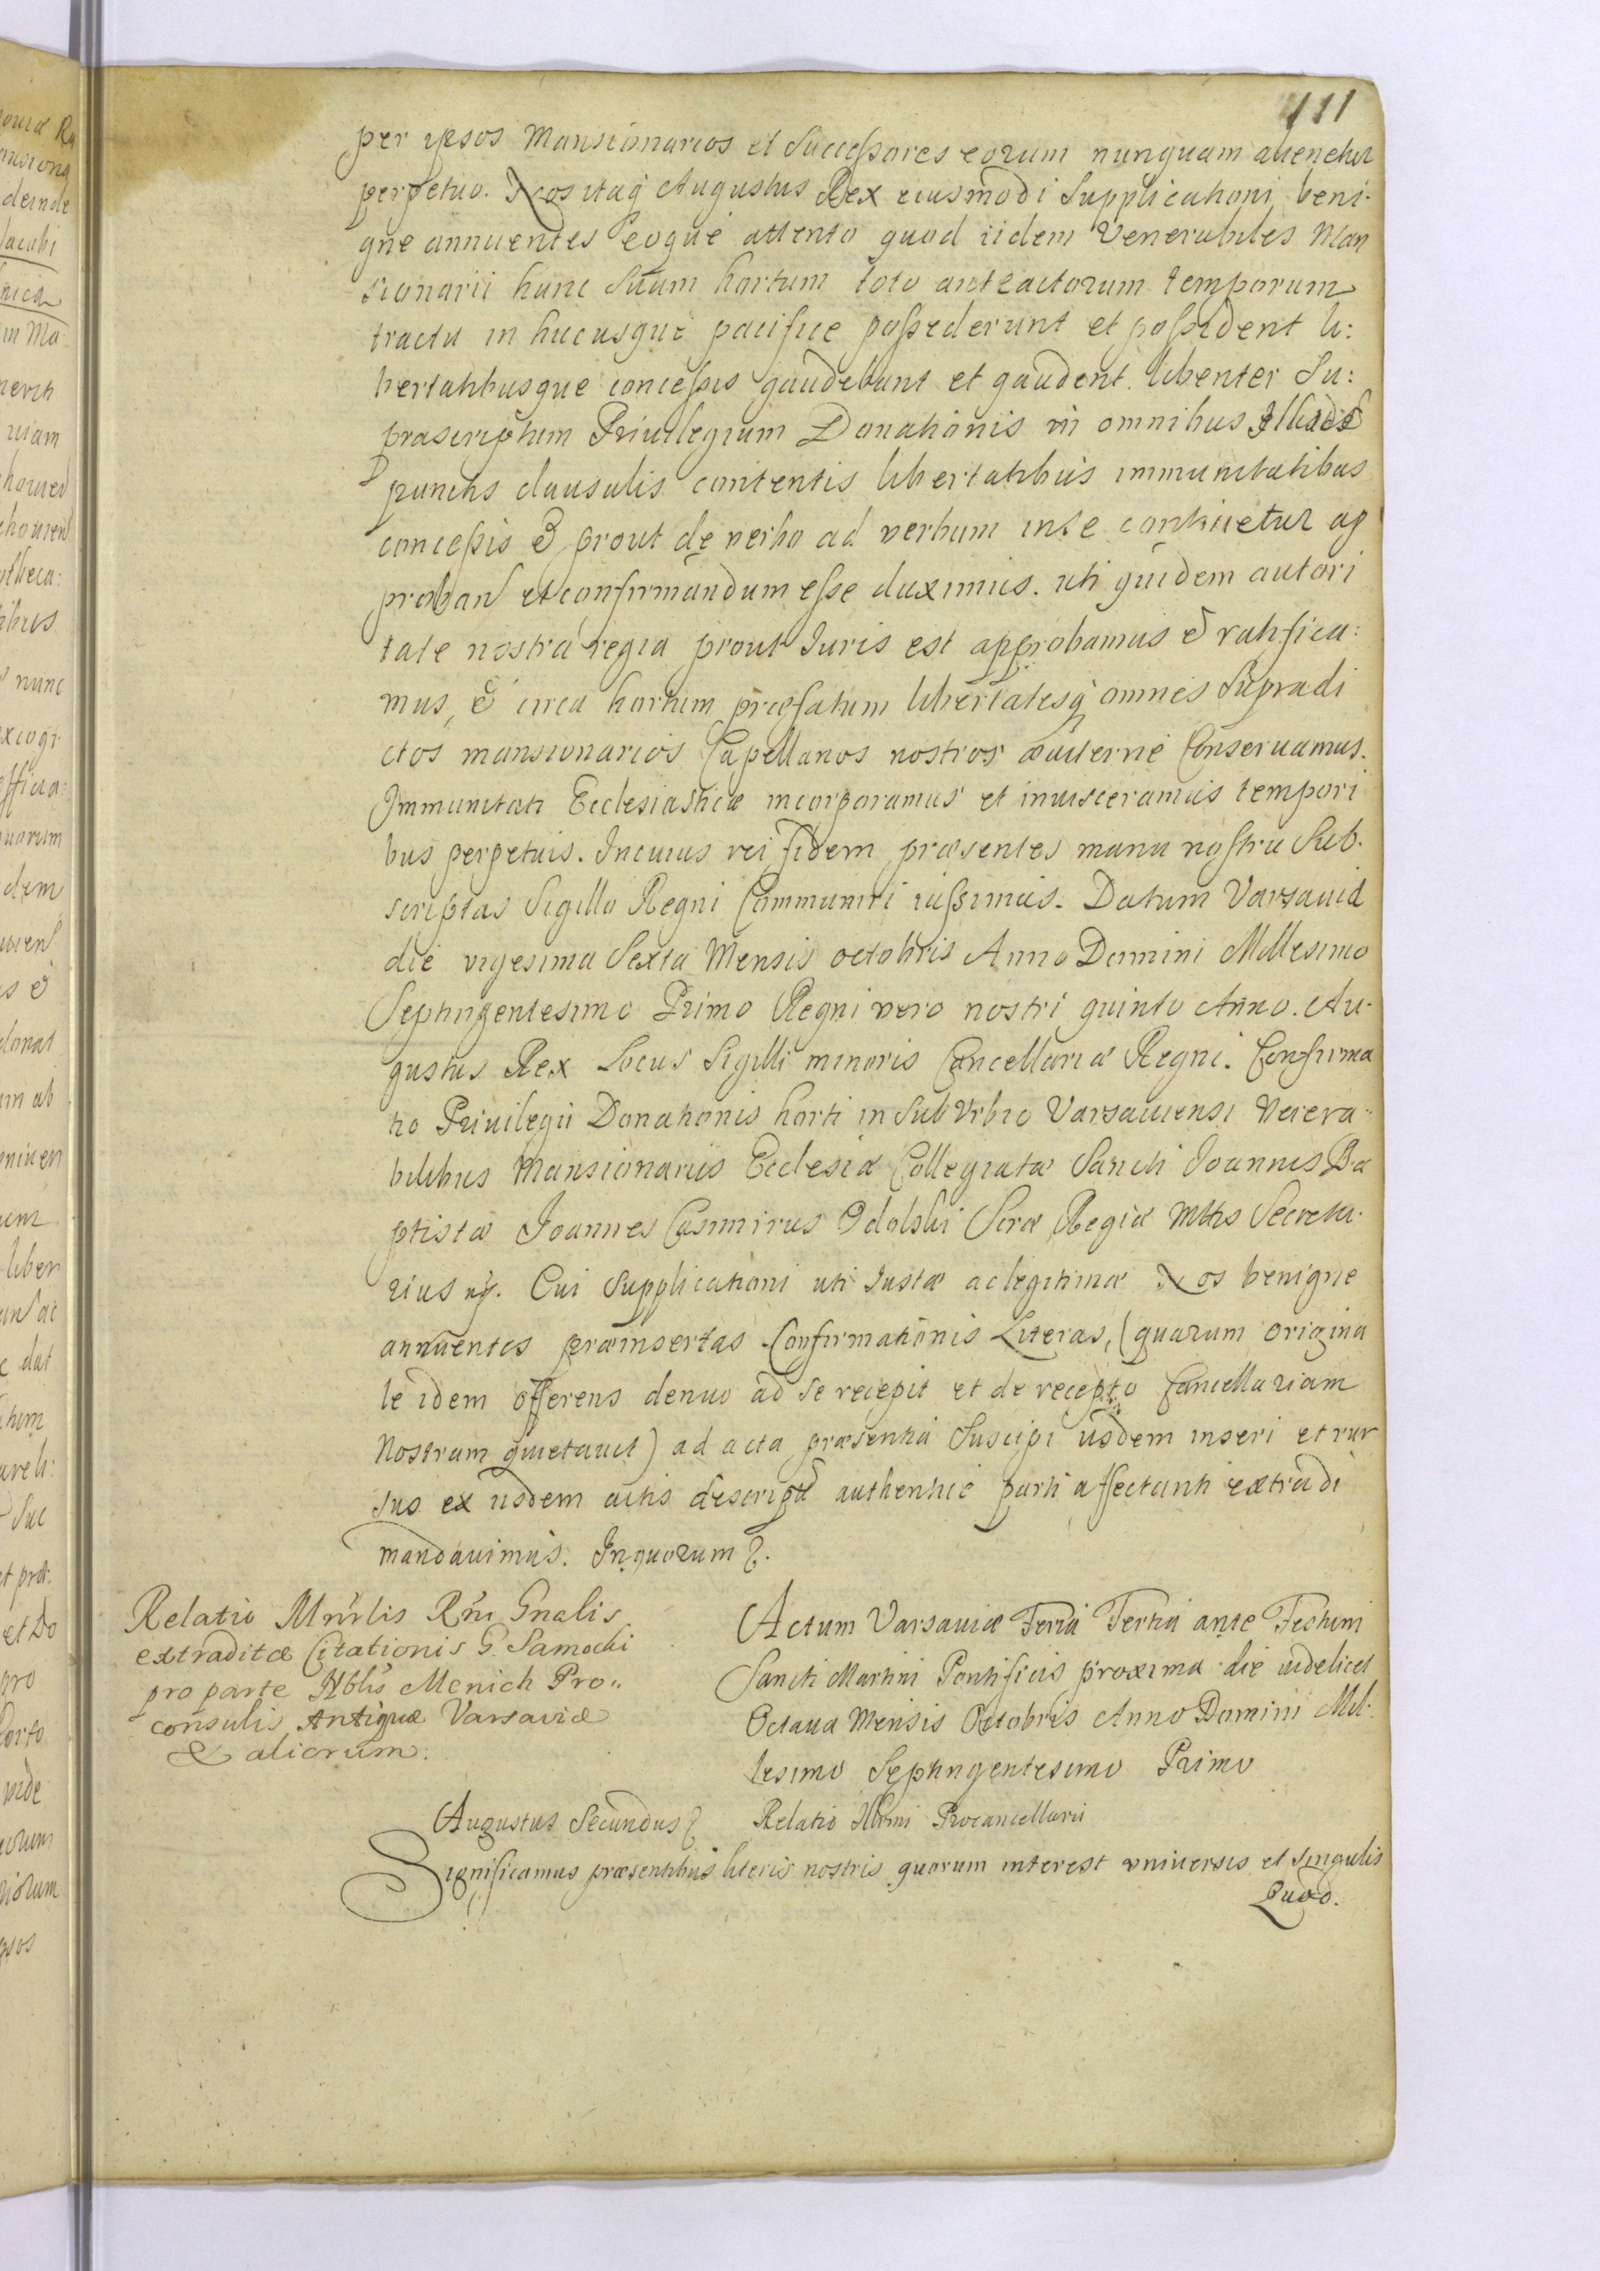 111
per ipsos Mansionarios et Successores eorum nunquam alienetur
perpetuo. Nos itaq Augustus Rex eiusmodi Supplicationi beni-
gne annuentes eoque attento quod iidem Venerabiles Man
sionarii hunc Suum hortum toto anteactorum temporum
tractu in hucusque pacifice possederunt et possident li:
bertatibusque concessis gaudebant et gaudent. libenter Su:
prascriptum Privilegium Donationis in omnibus
punctis clausulis contentis libertatibus immunitatibus
concessis & prout de verbo ad verbum in se continetur ap
proban et confirmandum esse duximus. uti quidem autori
tate nostra regia prout Iuris est approbamus & ratifica:
mus, & circa hortum præfatum libertatesq omnes Supradi
ctos mansionarios Capellanos nostros æviterne Conservamus.
Immunitati Ecclesiasticæ incorporamus et invisceramus tempori
bus perpetuis. In cuius rei fidem præsentes manu nostra Sub-
scriptas Sigillo Regni Communiri iussimus. Datum Varsaviæ
die vigesima Sexta Mensis octobris Anno Domini Millesimo
Septingentesimo Primo Regni vero nostri quinto Anno. Au-
gustus Rex Locus Sigilli minoris Cancellariæ Regni. Confirma
tio Privilegii Donationis horti in SubUrbio Varsaviensi Venera-
bilibus Mansionariis Ecclesiæ Collegiatæ Sancti Joannis Ba
ptistæ Joannes Casimirus Odolski Scræ Regiæ Mttis Secreta-
rius mp. Cui Supplicationi uti Iustæ ac legitimæ Nos benigne
annuentes præinsertas Confirmationis Literas, (quarum origina
le idem offerens denuo ad se recepit et de recepto Cancellariam
Nostram quietavit) ad acta præsentia Suscipi iisdem inseri et rur
sus ex iisdem actis authentice parti affectanti extradi
mandavimus. In quorum &.
Relatio Mnrlis Rni Gnalis
extraditæ Citationis G. Samocki
pro parte Nblis Menich Pro„
consulis Antiquæ Varsaviæ
& aliorum.
Actum Varsaviæ Feria Tertia ante Festum
Sancti Martini Pontificis proxima die videlicet
Octava Mensis Octobris Anno Domini Mil-
lesimo Septingentesimo Primo
Augustus Secundus & Relatio Illrmi Procancellarii
Significamus præsentibus literis nostris quorum interest universis et singulis
Quod.